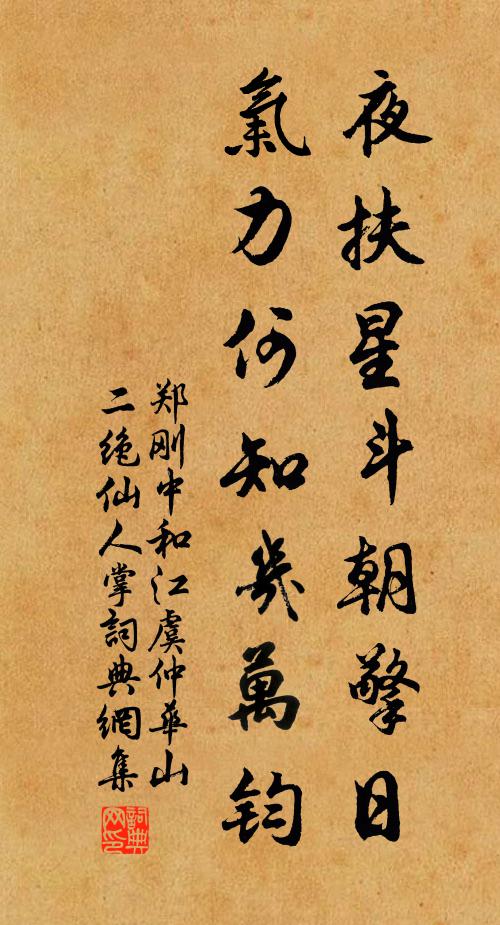 夜扶星斗朝擎日
氣力何知幾萬钧
郑刚中和江虞仲華山
二绝仙人掌詞典網集
詞典
网印